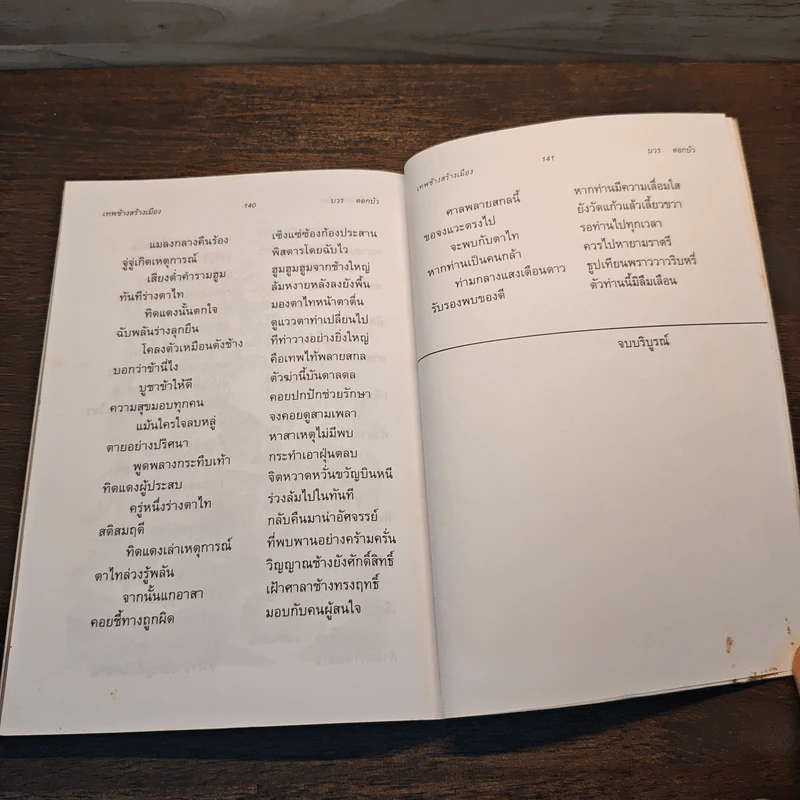 เทพช้างสร้างเมือง 140 บวร ดอกบัว
แมลงกลางคืนร้อง เซ็งแซ่ซ้องก้องประสาน
จู่จู่เกิดเหตุการณ์ พิสดารโดยฉับไว
เสียงต่ำคำรามฮูม ฮูมฮูมฮูมจากช้างใหญ่
ทันทีร่างตาไท ล้มหงายหลังลงยังพื้น
ทิดแดงนั้นตกใจ มองตาไทหน้าตาตื่น
ฉับพลันร่างลุกยืน ดูแววตาท่าเปลี่ยนไป
โคลงตัวเหมือนดังช้าง ทีท่าวางอย่างยิ่งใหญ่
บอกว่าข้านี่ไง คือเทพไท้พลายสกล
บูชาข้าให้ดี ตัวฆ่านี้บันดาลดล
ความสุขมอบทุกคน คอยปกปักช่วยรักษา
แม้นใครใจลบหลู่ จงคอยดูสามเพลา
ตายอย่างปริศนา หาสาเหตุไม่มีพบ
พูดพลางกระทืบเท้า กระทำเอาฝุ่นตลบ
ทิดแดงผู้ประสบ จิตหวาดหวั่นขวัญบินหนี
ครู่หนึ่งร่างตาไท ร่วงล้มไปในทันที
สติสมฤดี กลับคืนมาน่าอัศจรรย์
ทิดแดงเล่าเหตุการณ์ ที่พบพานอย่างคร้ามครั่น
ตาไทล่วงรู้พลัน วิญญาณช้างยังศักดิ์สิทธิ์
จากนั้นแกอาสา เฝ้าศาลาช้างทรงฤทธิ์
คอยชี้ทางถูกผิด มอบกับคนผู้สนใจ
เทพช้างสร้างเมือง 141 บวร ดอกบัว
ศาลพลายสกลนี้ หากท่านมีความเลื่อมใส
ขอจงแวะตรงไป ยังวัดแก้วแล้วเลี้ยวขวา
จะพบกับตาไท รอท่านไปทุกเวลา
หากท่านเป็นคนกล้า ควรไปหายามราตรี
ท่ามกลางแสงเดือนดาว ธูปเทียนพราววาวริบหรี่
รับรองพบของดี ตัวท่านนี้มิลืมเลือน
จบบริบูรณ์